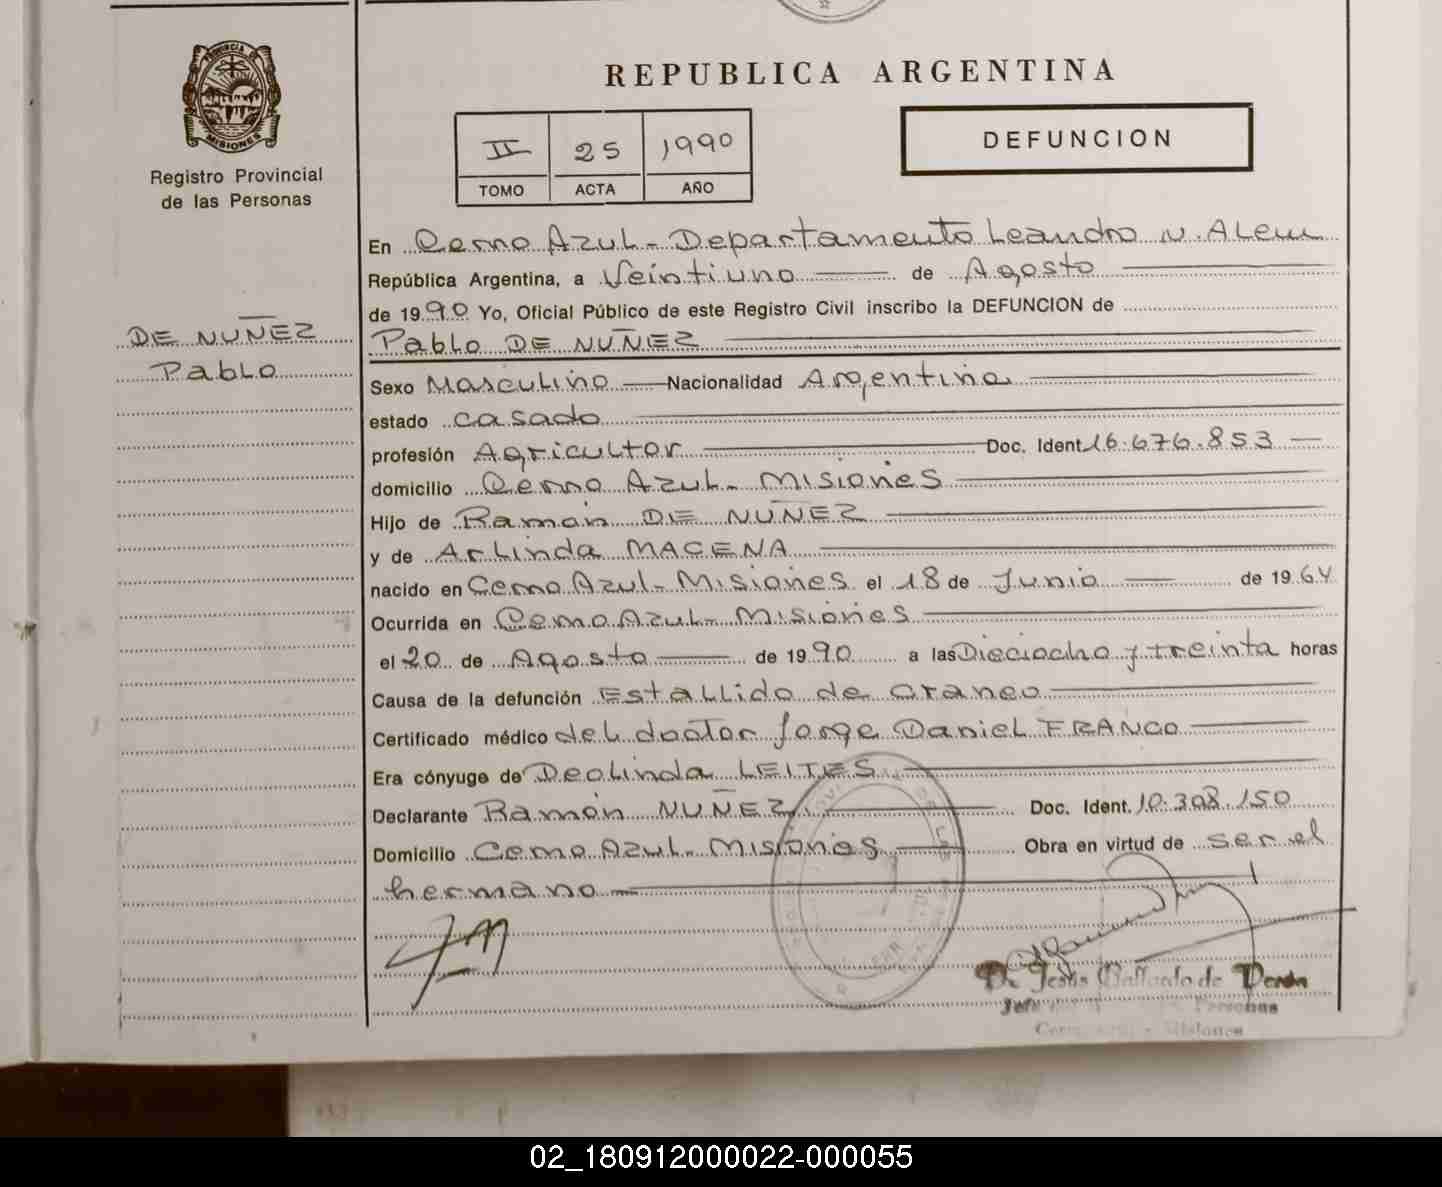 PROVINCIA DE
MISIONES
Registro Provincial
de las Personas
DE NUÑEZ
Pablo
REPUBLICA ARGENTINA
II 25 1990
TOMO ACTA AÑO
DEFUNCION
En Cerro Azul - Departamento Leandro N. Alem
República Argentina, a Veintiuno de Agosto
de 1990 Yo, Oficial Público de este Registro Civil inscribo la DEFUNCION de
Pablo DE NUÑEZ
Sexo Masculino Nacionalidad Argentina
estado casado
profesión Agricultor Doc. Ident. 16.676.853
domicilio Cerro Azul - Misiones
Hijo de Ramón DE NUÑEZ
y de Arlinda MACENA
nacido en Cerro Azul - Misiones el 18 de Junio de 1964
Ocurrida en Cerro Azul - Misiones
el 20 de Agosto de 1990 a las Dieciocho y treinta horas
Causa de la defunción Estallido de craneo
Certificado médico del doctor Jorge Daniel FRANCO
Era cónyuge de Deolinda LEITES
Declarante Ramón NUÑEZ Doc. Ident. 10.308.150
Domicilio Cerro Azul - Misiones Obra en virtud de ser el
hermano
Jesús Gallardo de
Personas
Misiones
02_180912000022-000055